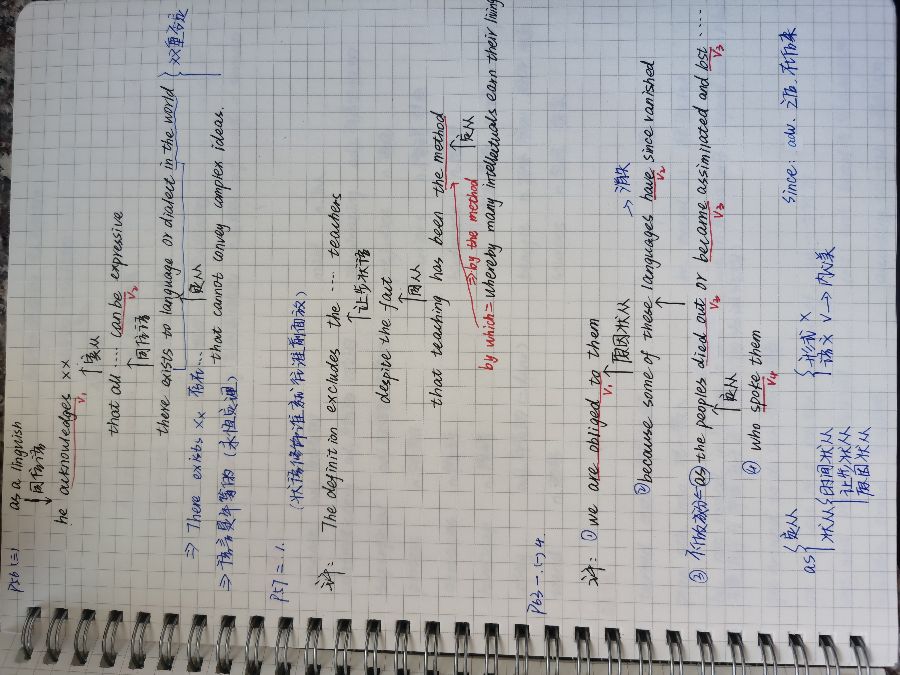 P56 1=1
as a linguish
同位语
he acknowledges xx
V₁
宾从
that all … can be expressive
V₂
同位语
there exists to language or dialect in the world
双重否定
定从
that cannot convey complex ideas.
⇒ There exists xx
⇒ 语言是平等的
P57 =.1.
译: The definition excludes the …… teachers
让步状语
despite the fact
同从
that teaching has been the method
定从
by which = whereby many intellectuals earn their living
⇒ by the method
P63 一.1) 4.
译: ① we are obliged to them
V₁
原因状从
② because some of these languages have since vanished
→ 消失
V₂
③ as the peoples died out or became assimilated and lost ……
V₃
V₃
V₃
定从
④ who spoke them
V₄
as
定从
状从
时间状从
让步状从
原因状从
形式 x
语义 v → 内心类
since: adv. 之后